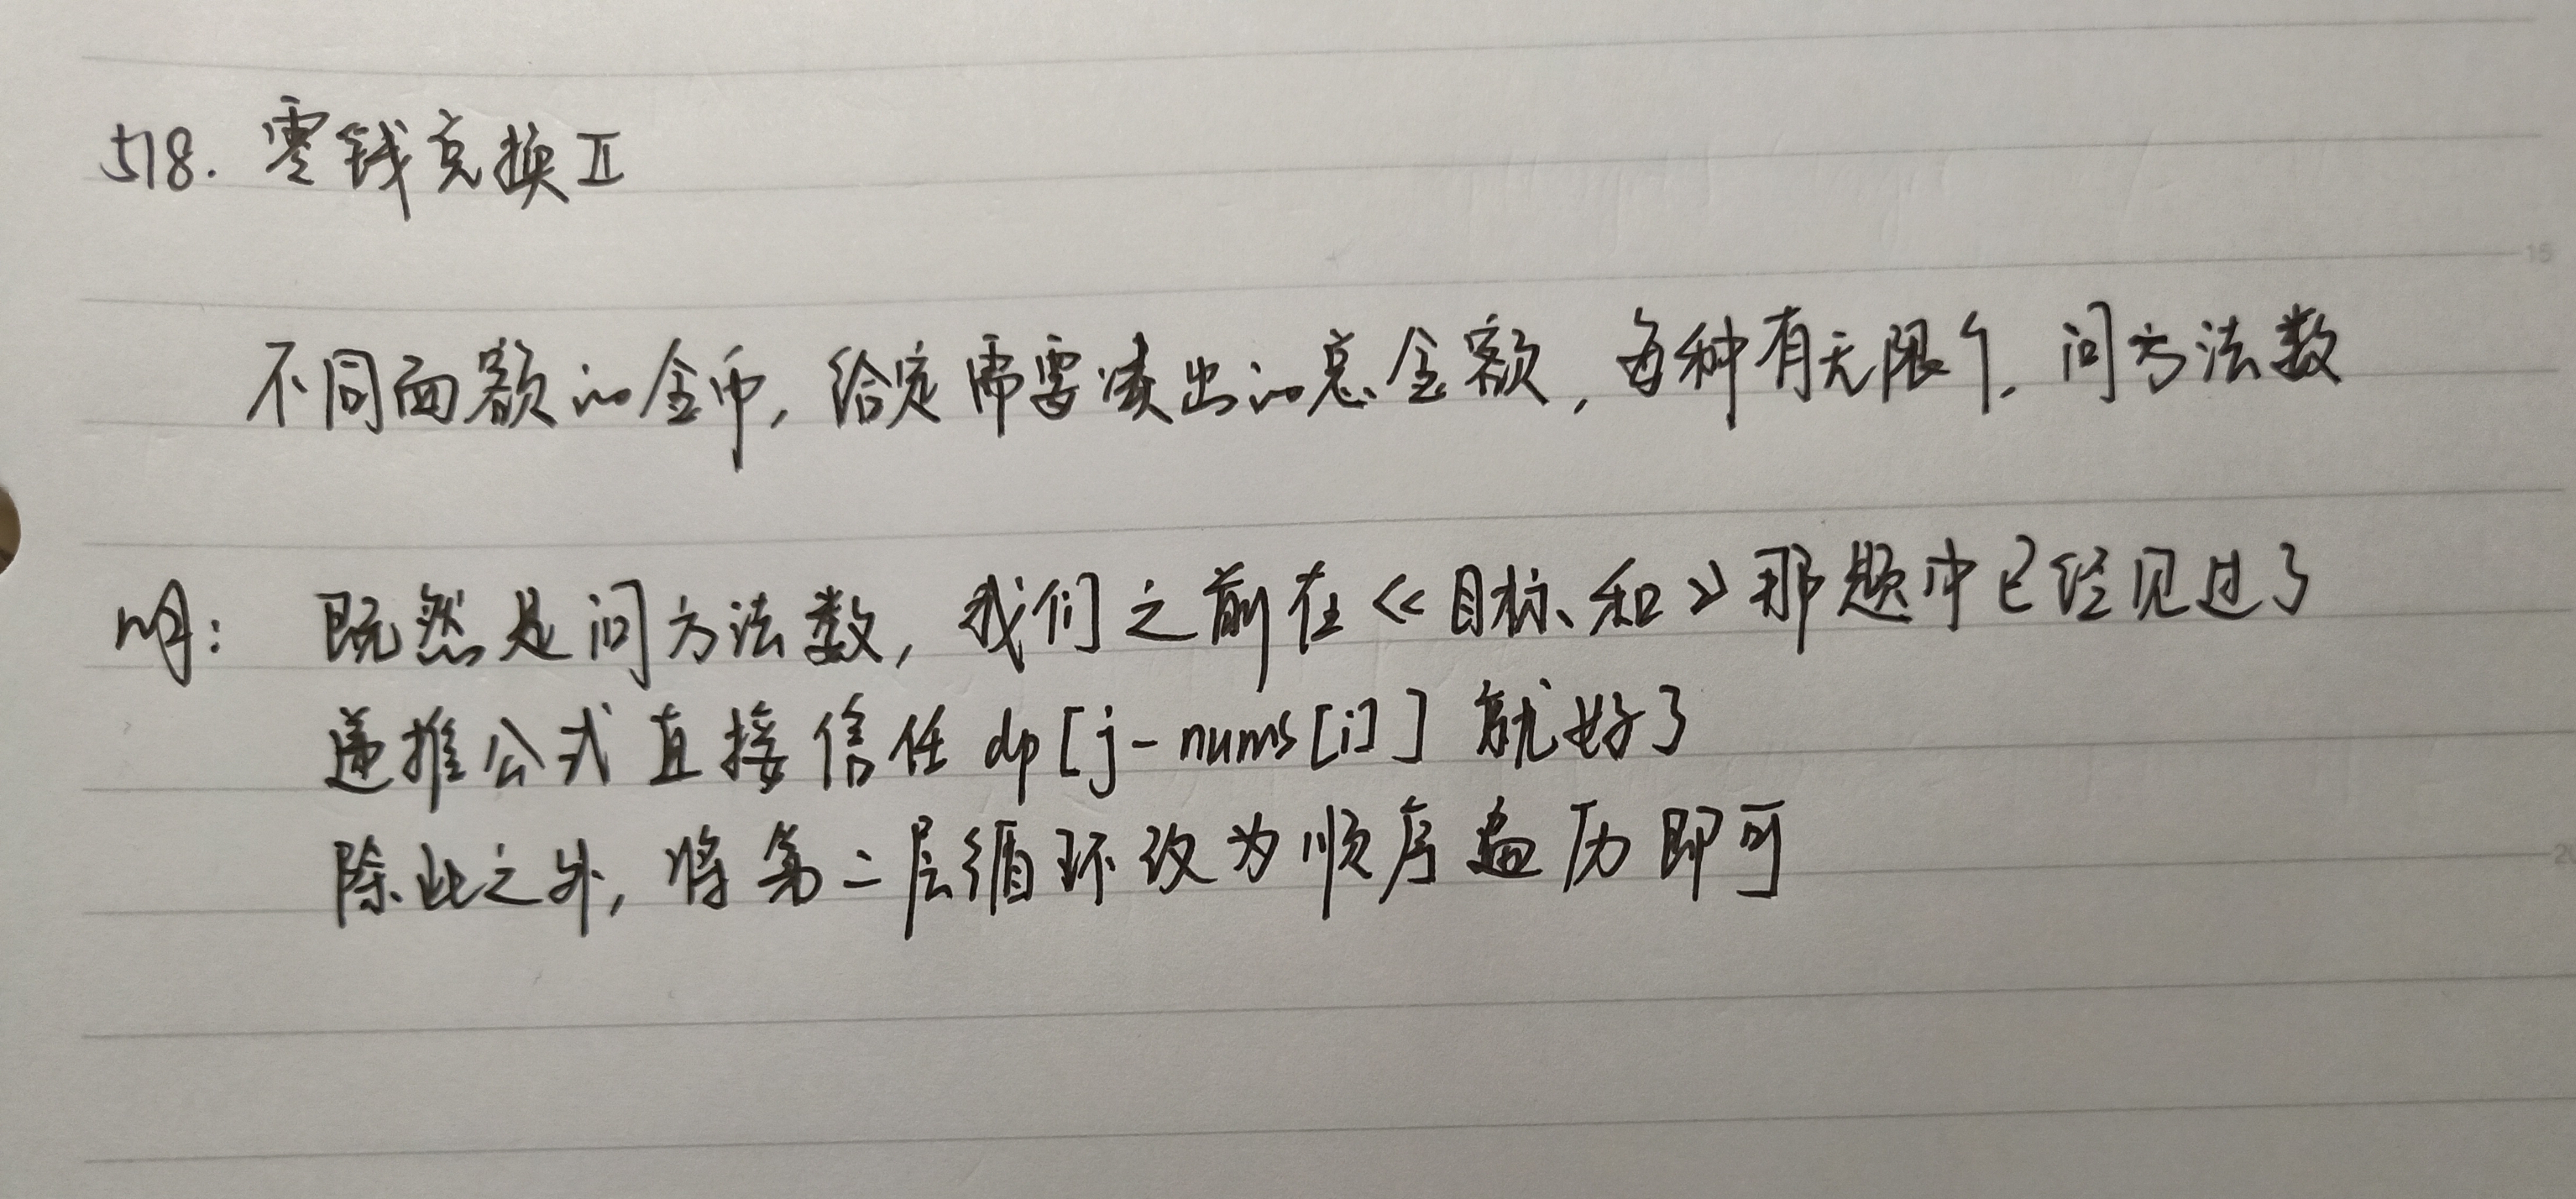 518. 零钱兑换Ⅱ
15
不同面额的金币, 给定需要凑出的总金额, 每种有无限个. 问方法数
明: 既然是问方法数, 我们之前在《目标和》那题中已经见过了
递推公式直接信任 dp[j-nums[i]] 就好了
除此之外, 将第二层循环改为顺序遍历即可